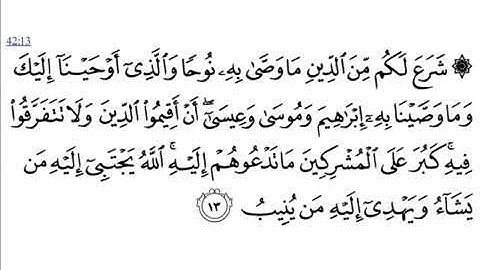 42:13
۞ شَرَعَ لَكُم مِّنَ ٱلدِّينِ مَا وَصَّىٰ بِهِۦ نُوحًا وَٱلَّذِىٓ أَوْحَيْنَآ إِلَيْكَ
وَمَا وَصَّيْنَا بِهِۦٓ إِبْرَٰهِيمَ وَمُوسَىٰ وَعِيسَىٰٓ ۖ أَنْ أَقِيمُوا۟ ٱلدِّينَ وَلَا تَتَفَرَّقُوا۟
فِيهِ ۚ كَبُرَ عَلَى ٱلْمُشْرِكِينَ مَا تَدْعُوهُمْ إِلَيْهِ ۚ ٱللَّهُ يَجْتَبِىٓ إِلَيْهِ مَن
يَشَآءُ وَيَهْدِىٓ إِلَيْهِ مَن يُنِيبُ ۝١٣